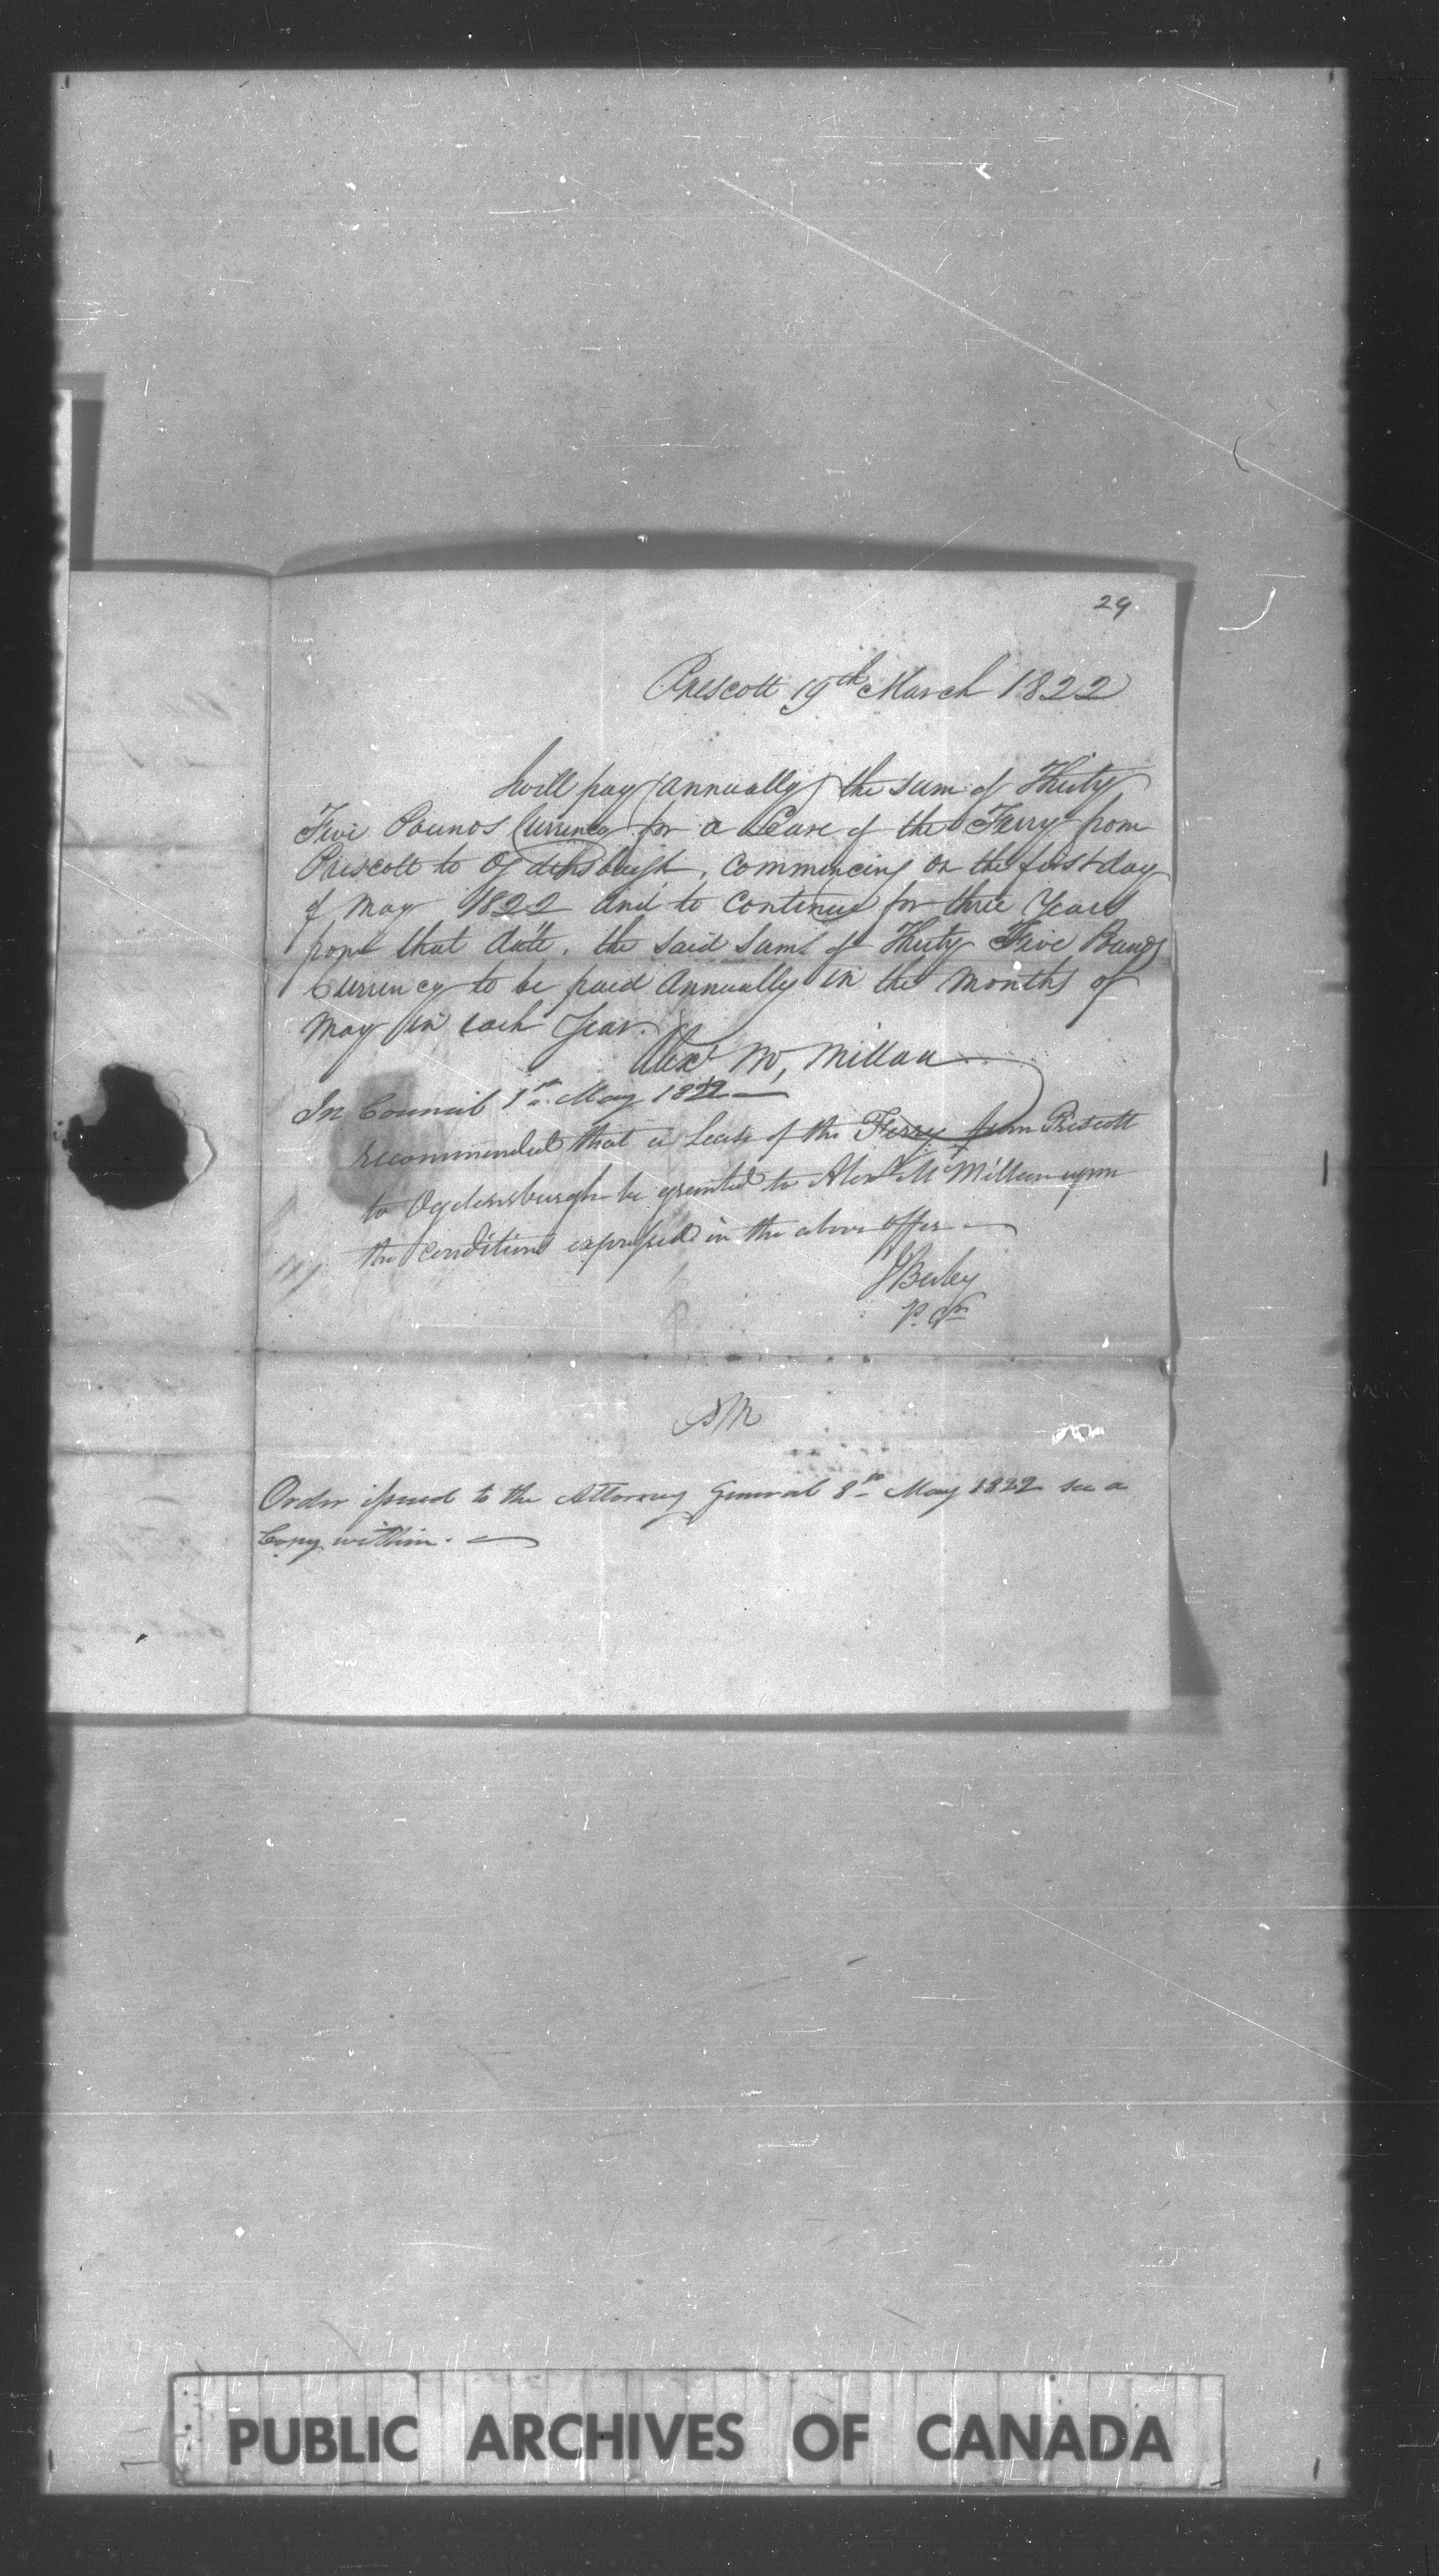 29.
Prescott 19th March 1822
I will pay (annually) the sum of Thirty
Five Pounds Currency for a Lease of the Ferry from
Prescott to Ogdensburgh, Commencing on the first day
of May 1822 and to Continue for three Years
from that date. the said Sum of Thirty Five Pounds
Currency to be paid Annually in the Months of
May in each Year.
Alexr Mc,Millan
In Council 1st May 1822
recommended that a Lease of the Ferry from Prescott
to Ogdensburgh be granted to Alexr McMillan upon
the Conditions expressed in the above offer
P. Cr
PM
Order issued to the Attorney General 8th May 1822 see a
Copy within.
PUBLIC ARCHIVES OF CANADA